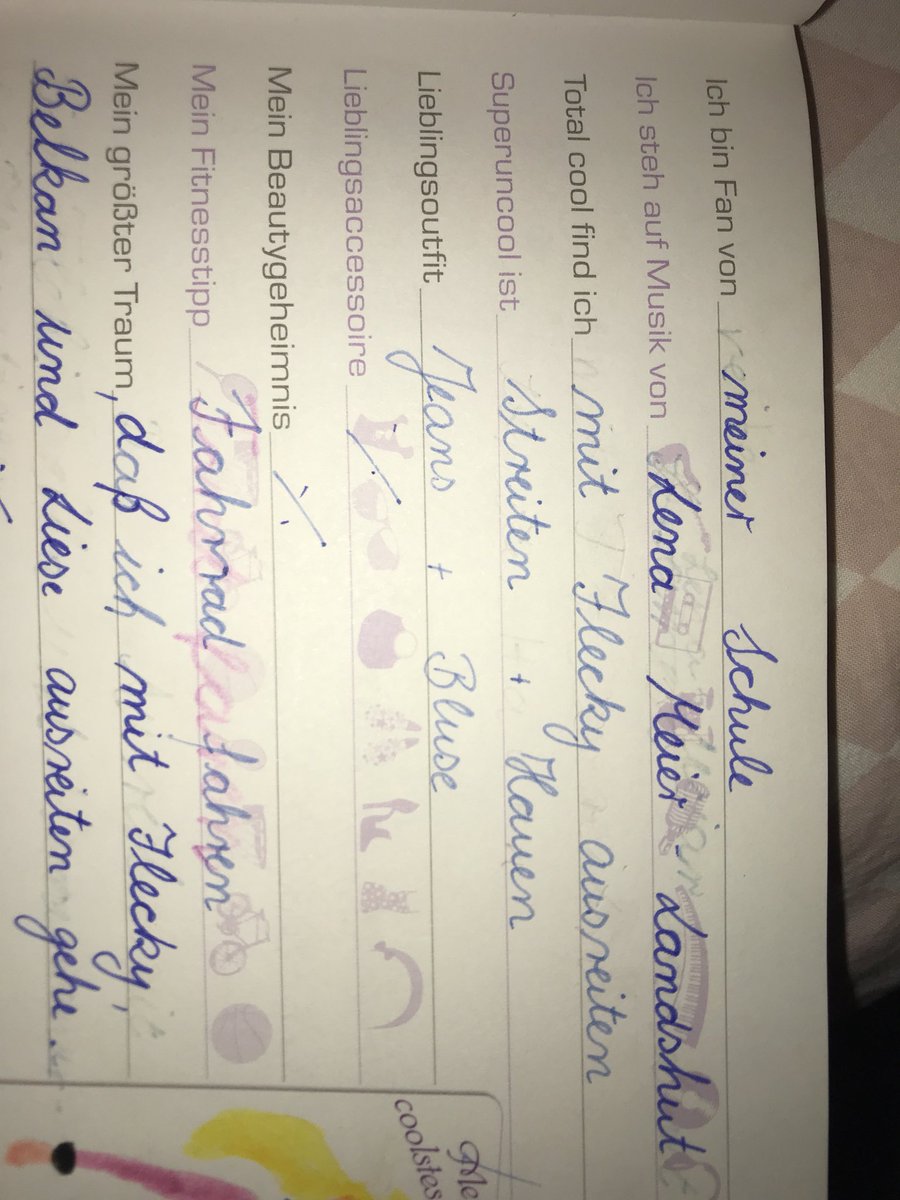 Ich bin Fan von meiner Schule
Ich steh auf Musik von Lena Meier-Landshut
Total cool find ich mit Flecky ausreiten
Superuncool ist Streiten + Hauen
Lieblingsoutfit Jeans + Bluse
Lieblingsaccessoire ⁒
Mein Beautygeheimnis ⁒
Mein Fitnesstipp Fahrrad fahren
Mein größter Traum, daß ich mit Flecky,
Belkan und Liese ausreiten gehe.
Me
coolstes